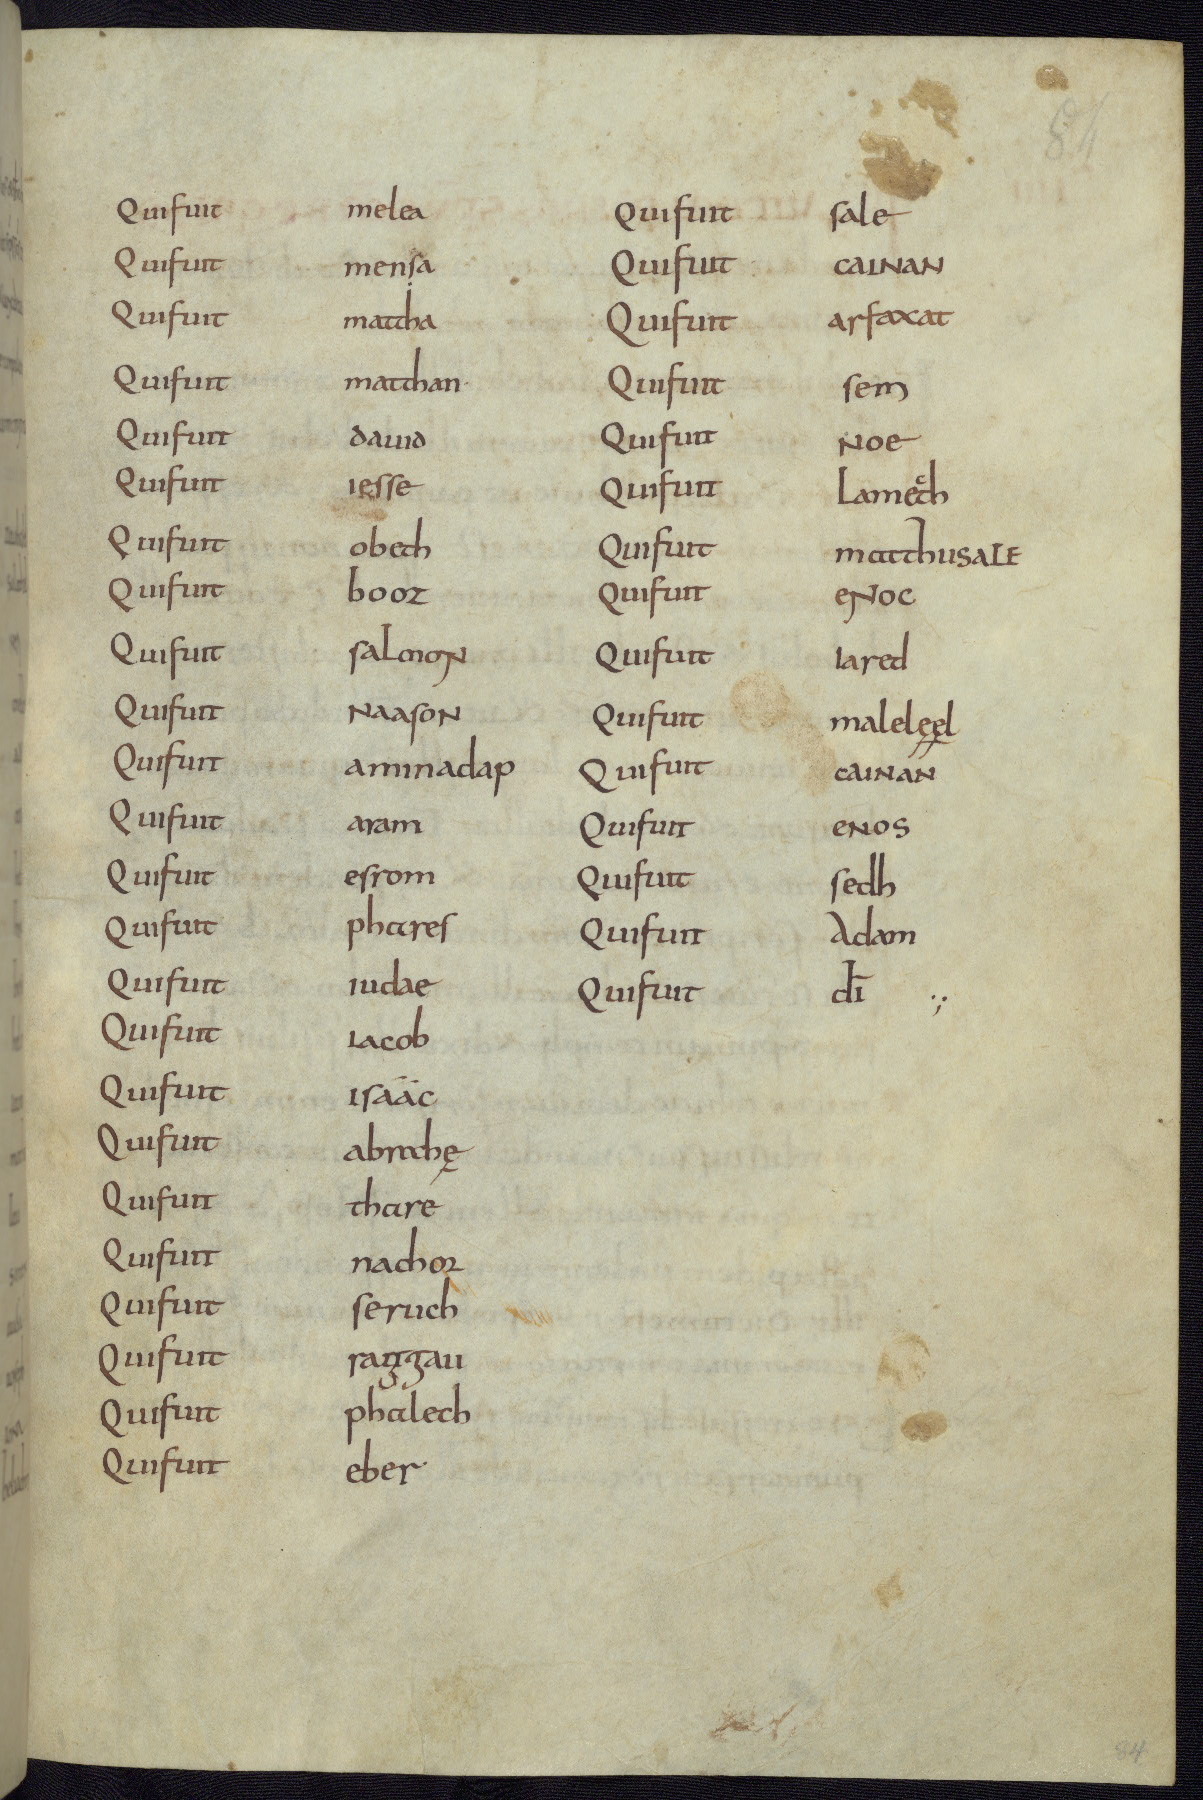 84
Quifuit melea
Quifuit mensa
Quifuit mattha
Quifuit matthan
Quifuit dauid
Quifuit iesse
Quifuit obeth
Quifuit booz
Quifuit salmon
Quifuit naason
Quifuit aminadap
Quifuit aram
Quifuit esrom
Quifuit phares
Quifuit iudae
Quifuit iacob
Quifuit isaac
Quifuit abrachę
Quifuit thare
Quifuit nachor
Quifuit seruch
Quifuit raggau
Quifuit phalech
Quifuit eber
Quifuit sale
Quifuit cainan
Quifuit arfaxat
Quifuit sem
Quifuit noe
Quifuit Lamecth
Quifuit matthusale
Quifuit enoc
Quifuit iared
Quifuit malelęęl
Quifuit cainan
Quifuit enos
Quifuit sedh
Quifuit Adam
Quifuit dī
84